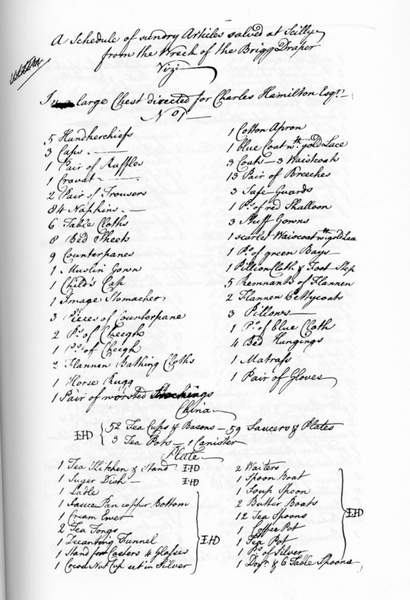 A Schedule of sundry Articles salved at Scilly
from the Wreck of the Brigg Draper
Viz:
In large Chest directed for Charles Hamilton Esqr.
No. 1
5 Handkerchiefs
3 Caps
1 Pair of Ruffles
1 Cravat
2 Pair of Trousers
84 Napkins
6 Table Cloths
8 Bed Sheets
9 Counterpanes
1 Muslin Gown
1 Child's Cap
1 Image Stomacher
3 Pieces of Counterpane
2 Ps. of Cheigh
1 Ps. of Cheigh
3 Flannen Bathing Cloths
1 Horse Rugg
1 Pair of worsted Stockings
1 Cotton Apron
1 Blue Coat wth. gold Lace
3 Coats - 3 Waistcoats
13 Pair of Breeches
3 Safe-Guards
1 Ps. of red Shalloon
3 Stuff Gowns
1 scarlet Waiscoat wth. gold Lea
1 Ps. of green Bays
1 Pillion Cloth & Foot Stop
5 Remnants of Flannen
2 Flannen Pettycoats
3 Pillows
1 Ps. of blue Cloth
4 Bed Hangings
1 Matrass
1 Pair of Gloves
China
EHD
52 Tea Cups & Basons - 59 Saucers & Plates
3 Tea Pots - 1 Canister
Plate
1 Tea Kitchen & Stand EHD
1 Suger Dish EHD
1 Ladle
1 Sauce Pan copper Bottom
1 Cream Ewer
2 Tea Tongs
1 Decanting Funnel
1 Stand for Castors 4 Glasses
1 Cocoa Nut Cup set in Silver
EHD
2 Waiters
1 Spoon Boat
1 Soup Spoon
2 Butter Boats
12 Tea Spoons
1 Coffee Pot
1 Tea Pot
1 Ps. of Silver
1 Dozn. & 6 Table Spoons
EHD